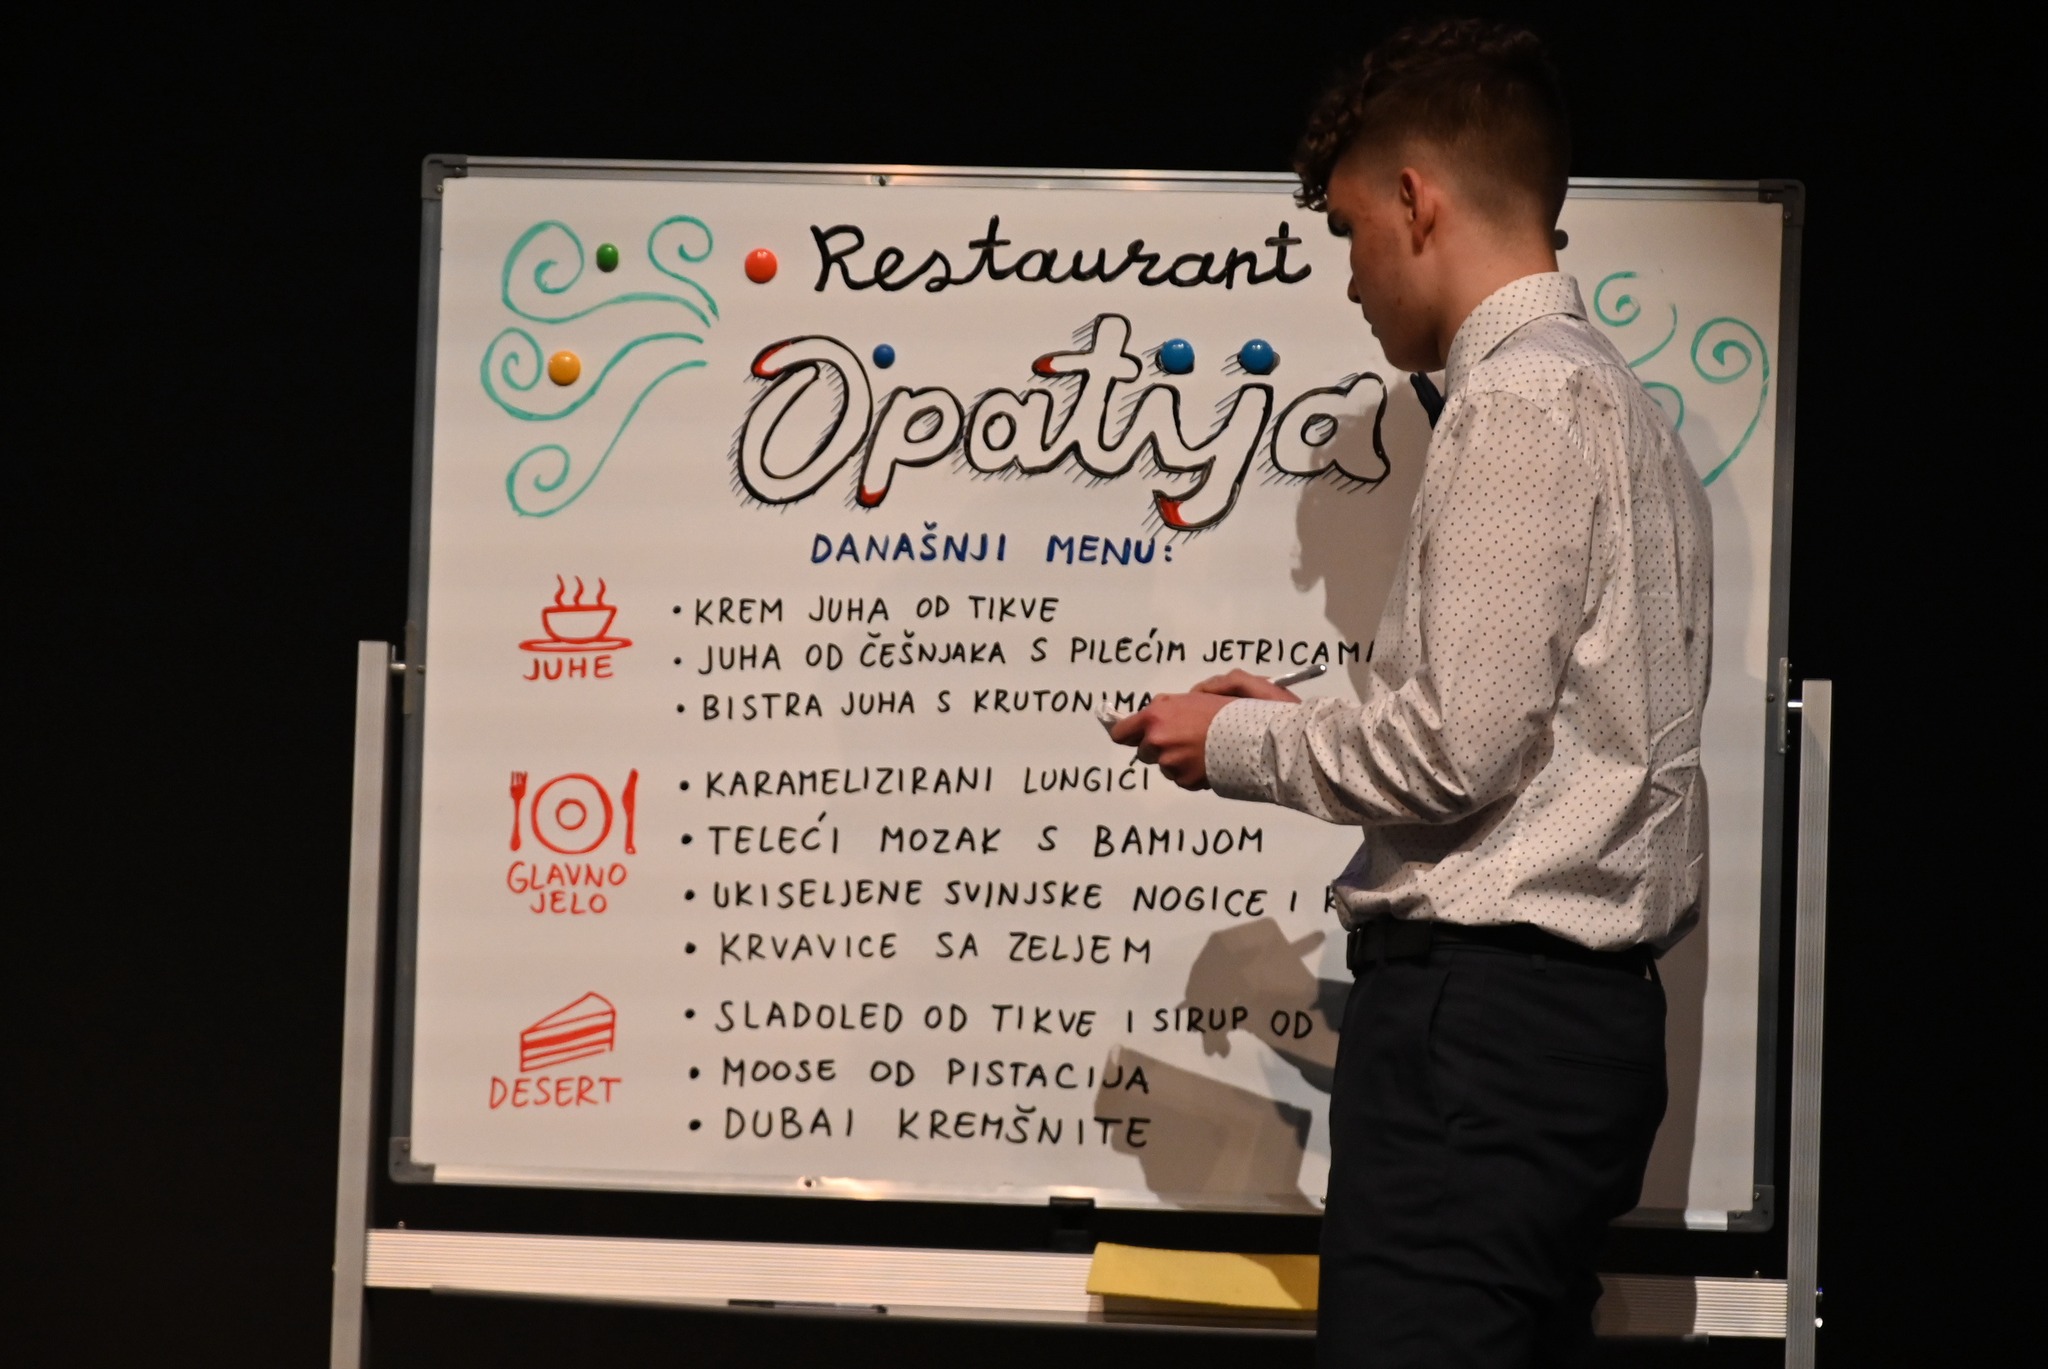 Restaurant
Opatija
DANAŠNJI MENU:
JUHE
• KREM JUHA OD TIKVE
• JUHA OD ČEŠNJAKA S PILEĆIM JETRICAMA
• BISTRA JUHA S KRUTONIMA
GLAVNO
JELO
• KARAMELIZIRANI LUNGIĆI
• TELEĆI MOZAK S BAMIJOM
• UKISELJENE SVINJSKE NOGICE I
• KRVAVICE SA ZELJEM
DESERT
• SLADOLED OD TIKVE I SIRUP OD
• MOOSE OD PISTACIJA
• DUBAI KREMŠNITE